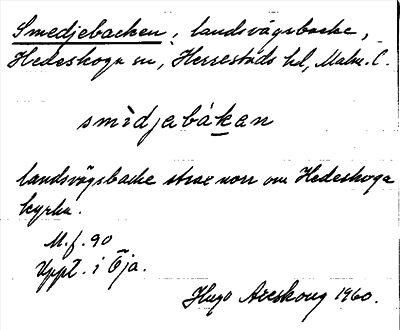 Smedjebacken, landsvägsbacke,
Hedeskoga sn, Herrestads hd, Malm. l.
smìdjabákan
landsvägsbacke strax norr om Hedeskoga
kyrka.
M.f. 90
Uppt. i Öja.
Hugo Areskoug 1960.